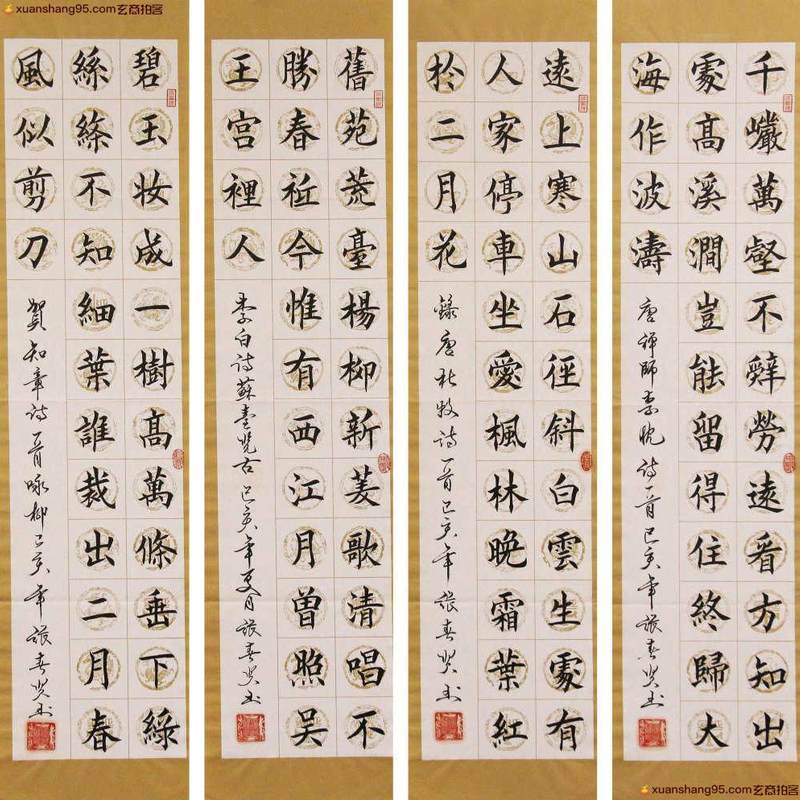 xuanshang95.com玄商拍客
千巖萬壑不辭勞遠看方知出
處高溪澗豈能留得住終歸大
海作波濤
唐禅師李忱诗一首己亥年張春贤书
遠上寒山石徑斜白雲生處有
人家停車坐愛楓林晚霜葉紅
於二月花
錄唐杜牧诗一首己亥年張春贤书
舊苑荒臺楊柳新菱歌清唱不
勝春祗今惟有西江月曾照吴
王宫裡人
李白诗蘇臺览古己亥年夏月張春贤书
碧玉妆成一樹高萬條垂下綠
絲絛不知細葉誰裁出二月春
風似剪刀
賀知章诗一首咏柳己亥年張春贤书
xuanshang95.com玄商拍客